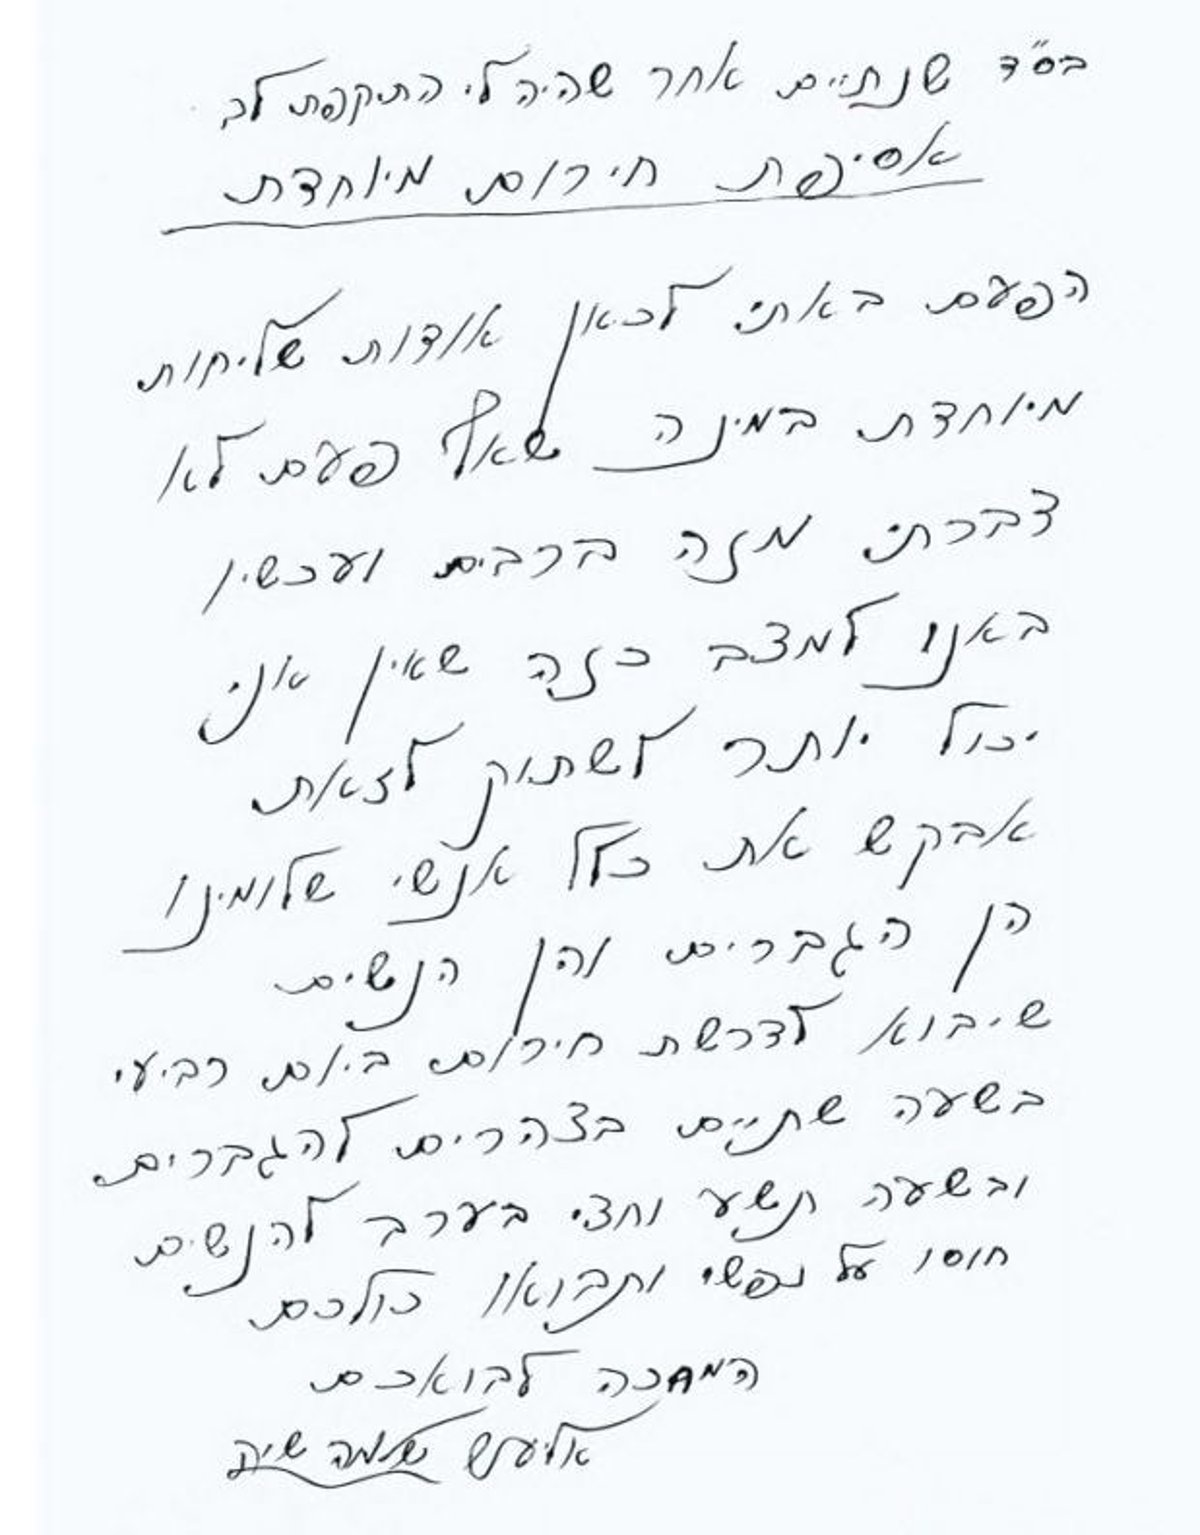 בס"ד שנתיים אחר שהיה לי התקפת לב
אסיפת חירום מיוחדת
הפעם באתי לכאן אודות שליחות
מיוחדת במינה שאף פעם לא
דברתי מזה ברבים ועכשיו
באנו למצב כזה שאין אני
יכול יותר לשתוק לזאת
אבקש את כלל אנשי שלומינו
הן הגברים והן הנשים
שיבוא לדרשת חירום ביום רביעי
בשעה שתיים בצהרים להגברים
ובשעה תשע וחצי בערב להנשים
חוסו על נפשי ותבואו כולכם
המחכה לבואכם
אליעזר שלמה שיק